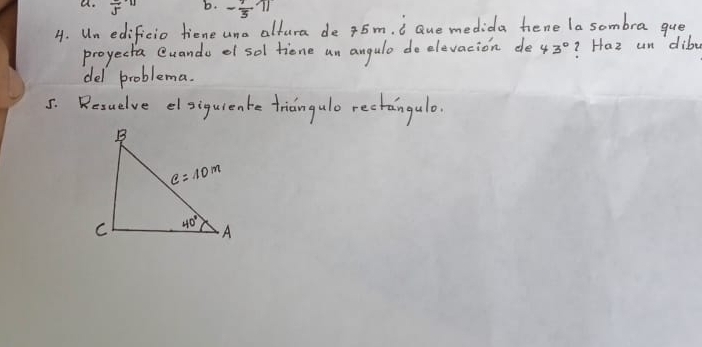 a. π/5 b. - π/3
4. Un edificio tiene una altura de 75m. ¿ Que medida tiene la sombra que
proyecta Cuando el sol tiene un angulo de elevación de 43°? Haz un dibu
del problema.
5. Resuelve el siguiente triángulo rectángulo.
B
c = 10m
C 40° A